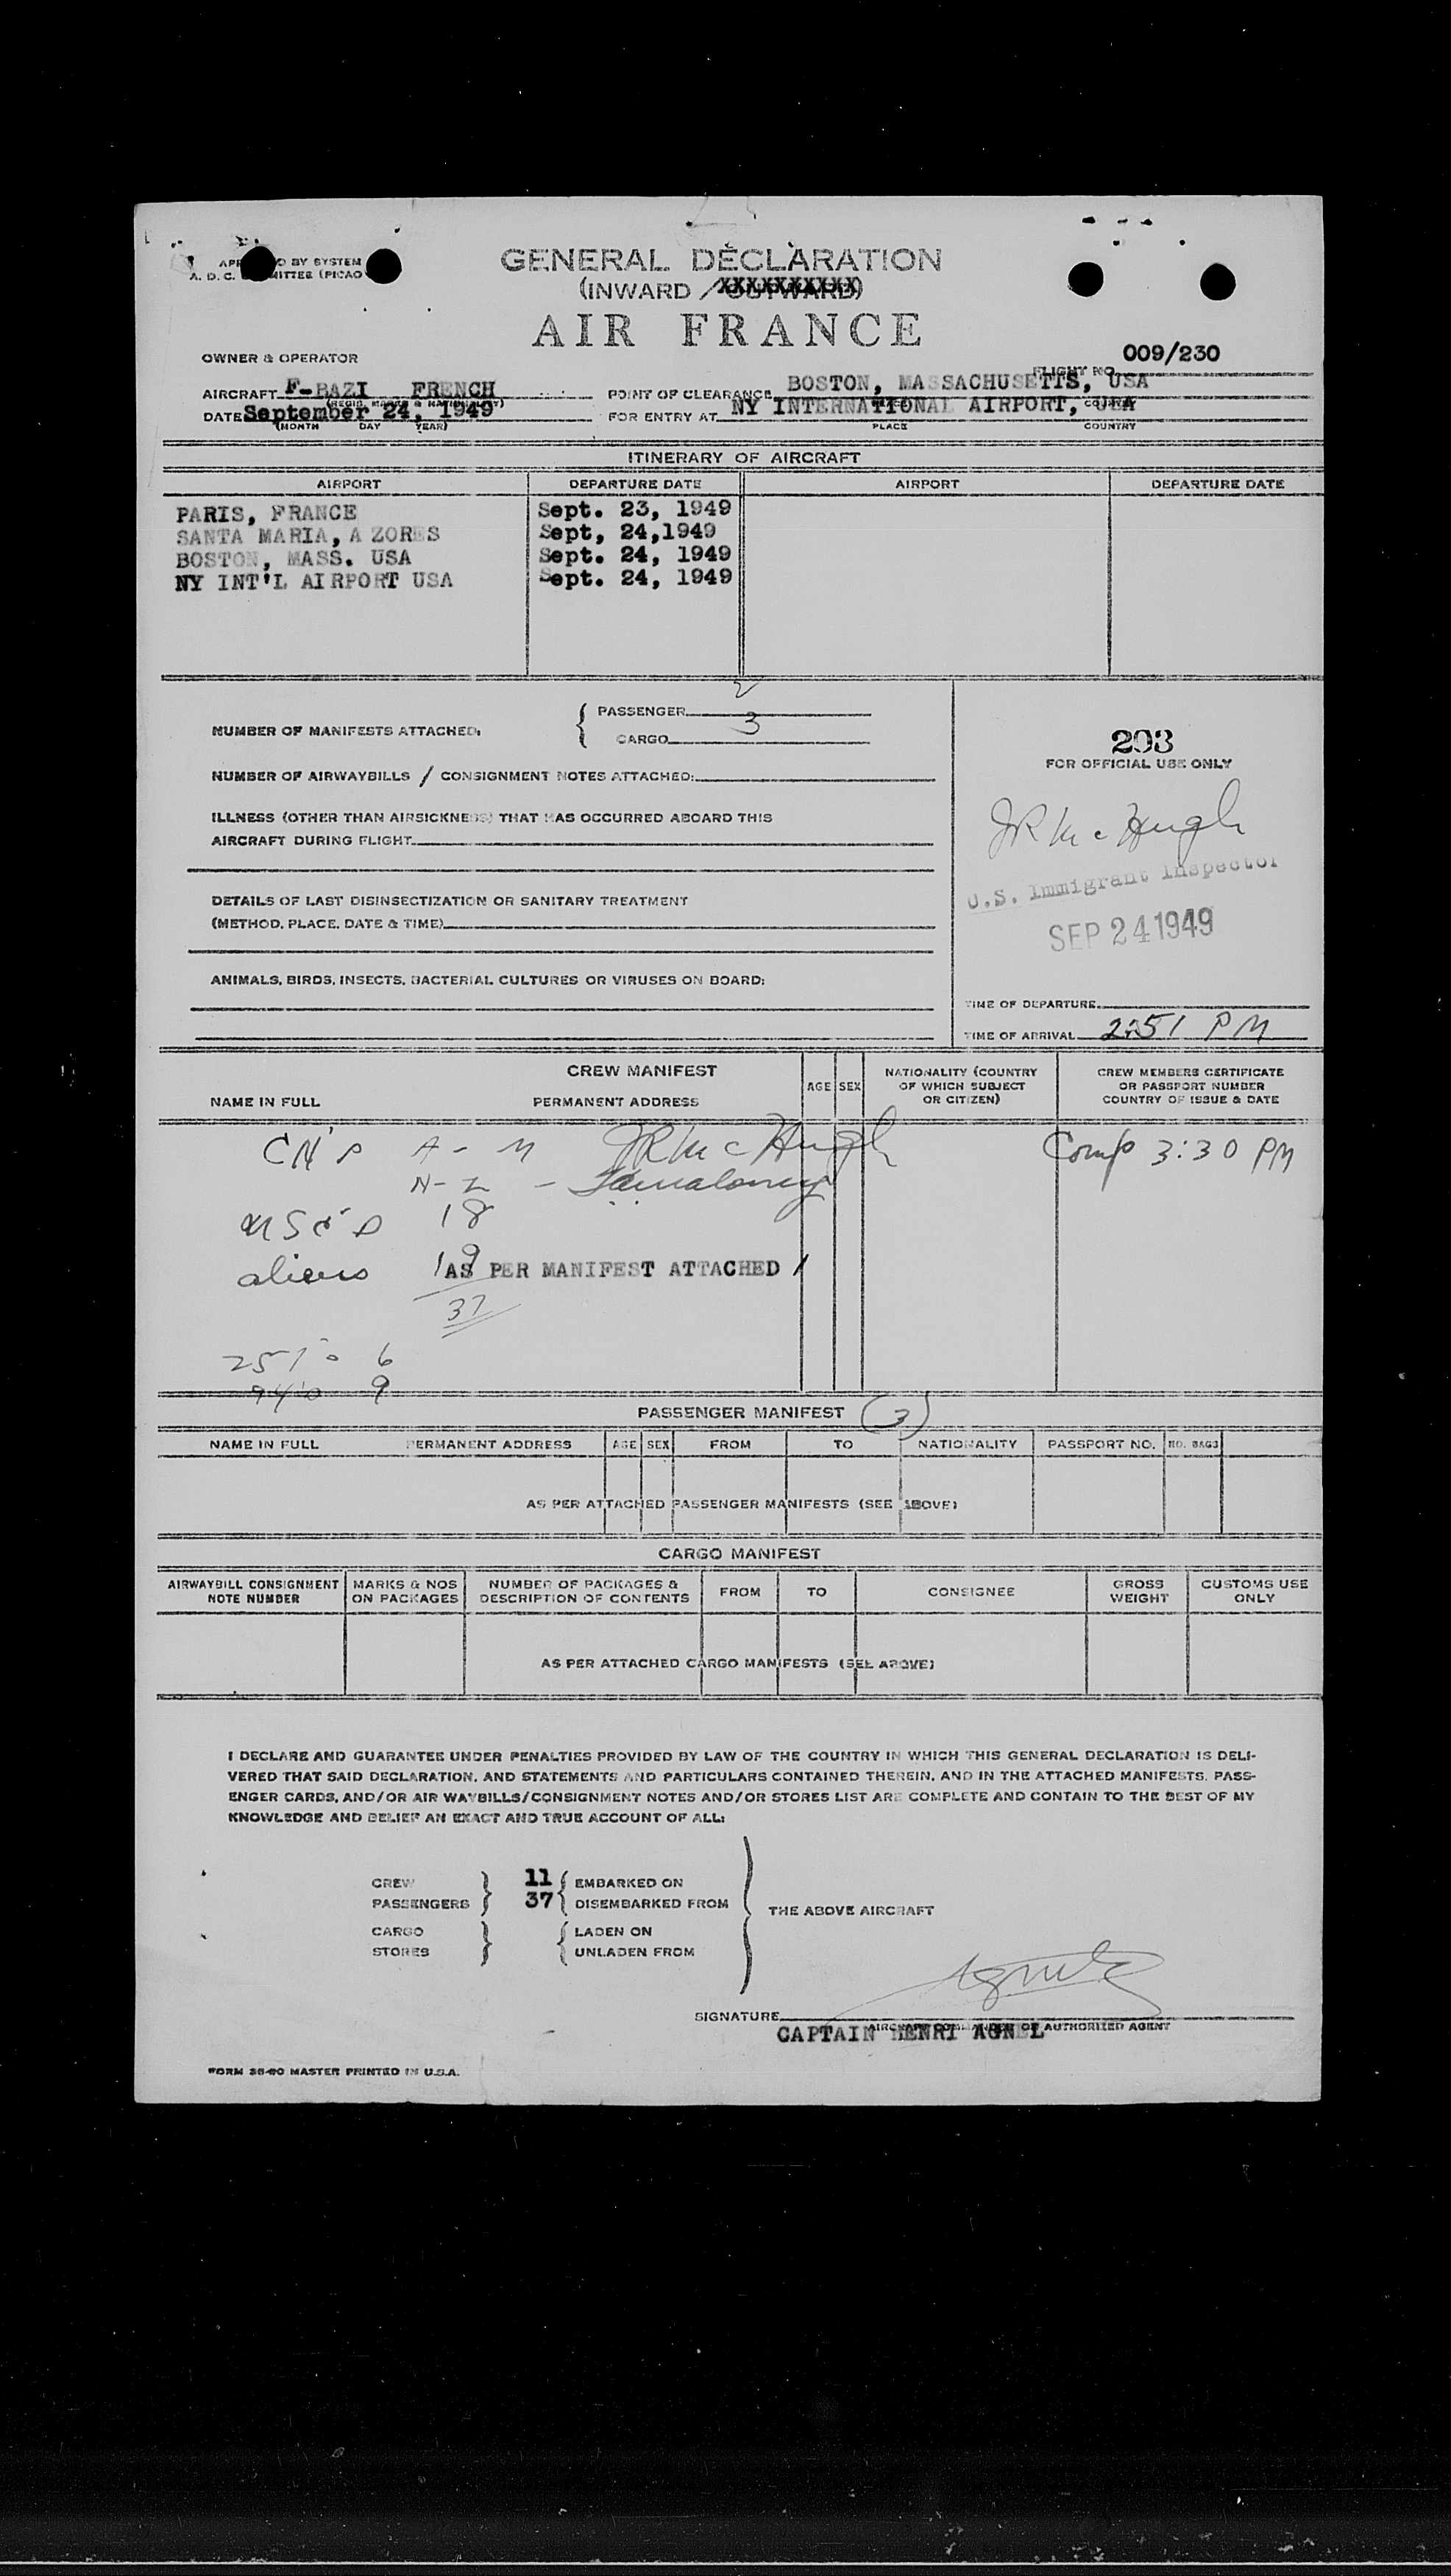 GENERAL DÉCLÀRATION
(INWARD / OUTWARD)
AIR FRANCE
OWNER & OPERATOR
009/230
FLIGHT NO
AIRCRAFT F-BAZI FRENCH
POINT OF CLEARANCE BOSTON, MASSACHUSETTS, USA
DATE September 24, 1949
(MONTH DAY YEAR)
FOR ENTRY AT NY INTERNATIONAL AIRPORT, USA
PLACE COUNTRY
ITINERARY OF AIRCRAFT
AIRPORT DEPARTURE DATE AIRPORT DEPARTURE DATE
PARIS, FRANCE Sept. 23, 1949
SANTA MARIA, A ZORES Sept, 24,1949
BOSTON, MASS. USA Sept. 24, 1949
NY INT'L AIRPORT USA Sept. 24, 1949
NUMBER OF MANIFESTS ATTACHED:
PASSENGER 2
CARGO 3
203
FOR OFFICIAL USE ONLY
NUMBER OF AIRWAYBILLS / CONSIGNMENT NOTES ATTACHED:
ILLNESS (OTHER THAN AIRSICKNESS) THAT HAS OCCURRED ABOARD THIS
AIRCRAFT DURING FLIGHT
JR McHugh
U.S. Immigrant Inspector
SEP 24 1949
DETAILS OF LAST DISINSECTIZATION OR SANITARY TREATMENT
(METHOD, PLACE, DATE & TIME)
ANIMALS, BIRDS, INSECTS, BACTERIAL CULTURES OR VIRUSES ON BOARD:
TIME OF DEPARTURE
TIME OF ARRIVAL 2:51 PM
CREW MANIFEST
NAME IN FULL PERMANENT ADDRESS AGE SEX NATIONALITY (COUNTRY OF WHICH SUBJECT OR CITIZEN) CREW MEMBERS CERTIFICATE OR PASSPORT NUMBER COUNTRY OF ISSUE & DATE
A - M JR McHugh Comp 3:30 PM
N - Z -
18
aliens 19 AS PER MANIFEST ATTACHED /
37
6
9
PASSENGER MANIFEST (3)
NAME IN FULL PERMANENT ADDRESS AGE SEX FROM TO NATIONALITY PASSPORT NO. NO. BAGS
AS PER ATTACHED PASSENGER MANIFESTS (SEE ABOVE)
CARGO MANIFEST
AIRWAYBILL CONSIGNMENT NOTE NUMBER MARKS & NOS ON PACKAGES NUMBER OF PACKAGES & DESCRIPTION OF CONTENTS FROM TO CONSIGNEE GROSS WEIGHT CUSTOMS USE ONLY
AS PER ATTACHED CARGO MANIFESTS (SEE ABOVE)
I DECLARE AND GUARANTEE UNDER PENALTIES PROVIDED BY LAW OF THE COUNTRY IN WHICH THIS GENERAL DECLARATION IS DELI-
VERED THAT SAID DECLARATION, AND STATEMENTS AND PARTICULARS CONTAINED THEREIN, AND IN THE ATTACHED MANIFESTS, PASS-
ENGER CARDS, AND/OR AIR WAYBILLS/CONSIGNMENT NOTES AND/OR STORES LIST ARE COMPLETE AND CONTAIN TO THE BEST OF MY
KNOWLEDGE AND BELIEF AN EXACT AND TRUE ACCOUNT OF ALL:
CREW 11 EMBARKED ON
PASSENGERS 37 DISEMBARKED FROM
THE ABOVE AIRCRAFT
CARGO LADEN ON
STORES UNLADEN FROM
SIGNATURE
CAPTAIN HENRI AGNEL
FORM 36-60 MASTER PRINTED IN U.S.A.